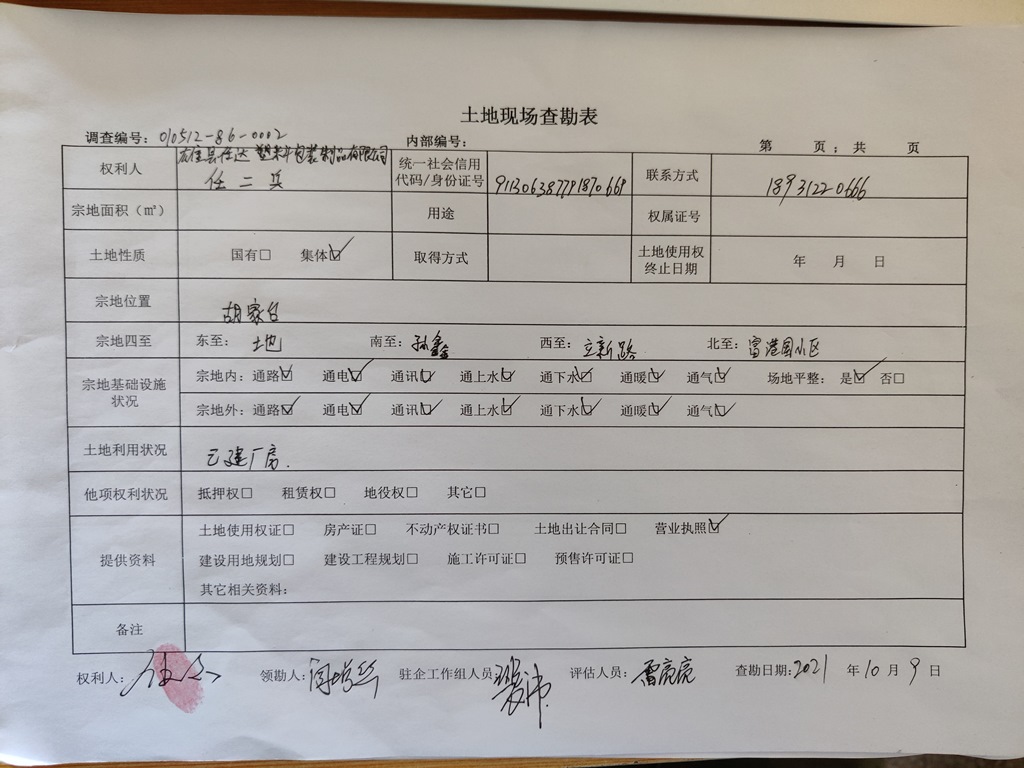 土地现场查勘表
调查编号：010512-86-0002 内部编号： 第 页；共 页
权利人 塑料包装制品有限公司 统一社会信用代码/身份证号 联系方式 18931220666
任二兵
宗地面积（㎡） 用途 权属证号
土地性质 国有☐ 集体☑ 取得方式 土地使用权终止日期 年 月 日
宗地位置 胡家台
宗地四至 东至：土地 南至：孙鑫 西至：立新路 北至：富港国小区
宗地基础设施状况 宗地内：通路☑ 通电☑ 通讯☑ 通上水☑ 通下水☑ 通暖☑ 通气☑ 场地平整：是☑ 否☐
宗地外：通路☑ 通电☑ 通讯☑ 通上水☑ 通下水☑ 通暖☑ 通气☑
土地利用状况 已建厂房.
他项权利状况 抵押权☐ 租赁权☐ 地役权☐ 其它☐
提供资料 土地使用权证☐ 房产证☐ 不动产权证书☐ 土地出让合同☐ 营业执照☑
建设用地规划☐ 建设工程规划☐ 施工许可证☐ 预售许可证☐
其它相关资料：
备注
权利人： 领勘人： 驻企工作组人员： 评估人员：雷亮亮 查勘日期:2021 年10月9日